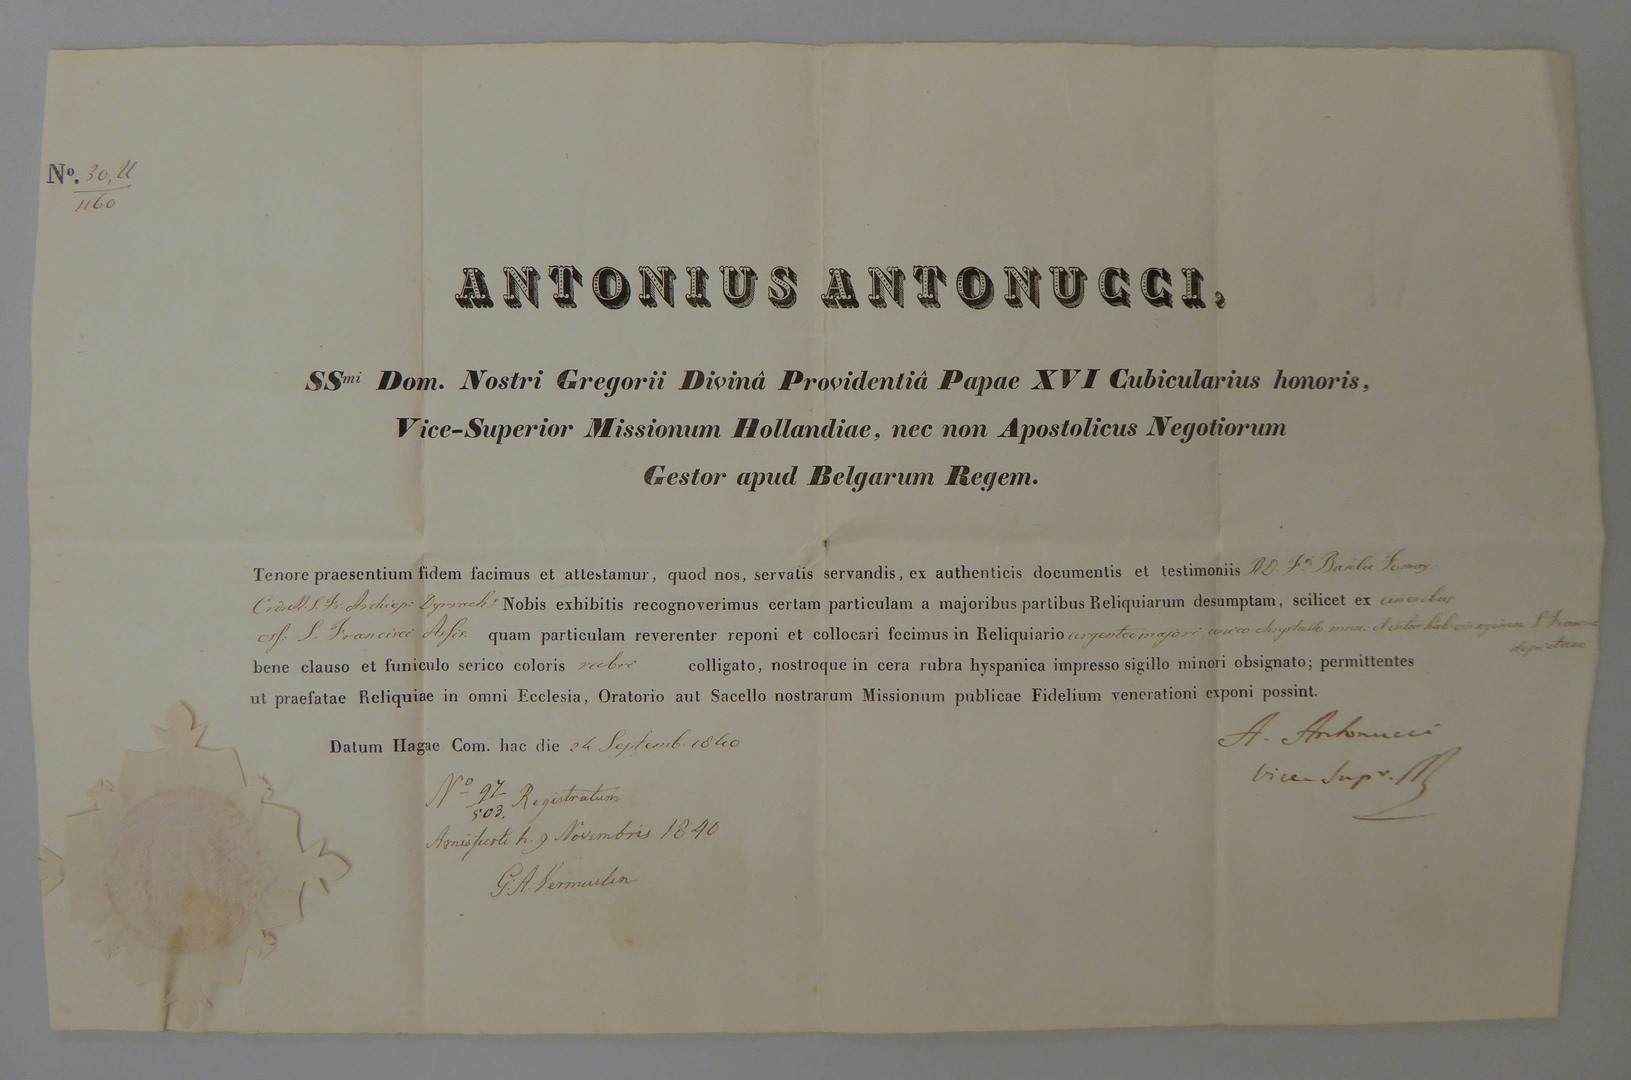 Nº. 30,
1160
ANTONIUS ANTONUCCI,
SSmi Dom. Nostri Gregorii Divinâ Providentiâ Papae XVI Cubicularius honoris,
Vice-Superior Missionum Hollandiae, nec non Apostolicus Negotiorum
Gestor apud Belgarum Regem.
Tenore praesentium fidem facimus et attestamur, quod nos, servatis servandis, ex authenticis documentis et testimoniis
Archiep: Nobis exhibitis recognoverimus certam particulam a majoribus partibus Reliquiarum desumptam, scilicet ex cineribus
S. Francisci Assis. quam particulam reverenter reponi et collocari fecimus in Reliquiario argenteo majori, unico chrystallo S. Francisci
bene clauso et funiculo serico coloris rubri colligato, nostroque in cera rubra hyspanica impresso sigillo minori obsignato; permittentes
ut praefatae Reliquiae in omni Ecclesia, Oratorio aut Sacello nostrarum Missionum publicae Fidelium venerationi exponi possint.
Datum Hagae Com. hac die 24 Septemb. 1840
A. Antonucci
Vice-Supr.
Nº 97
503. Registratum
h. 9 Novembris 1840
G. A. Vermeulen